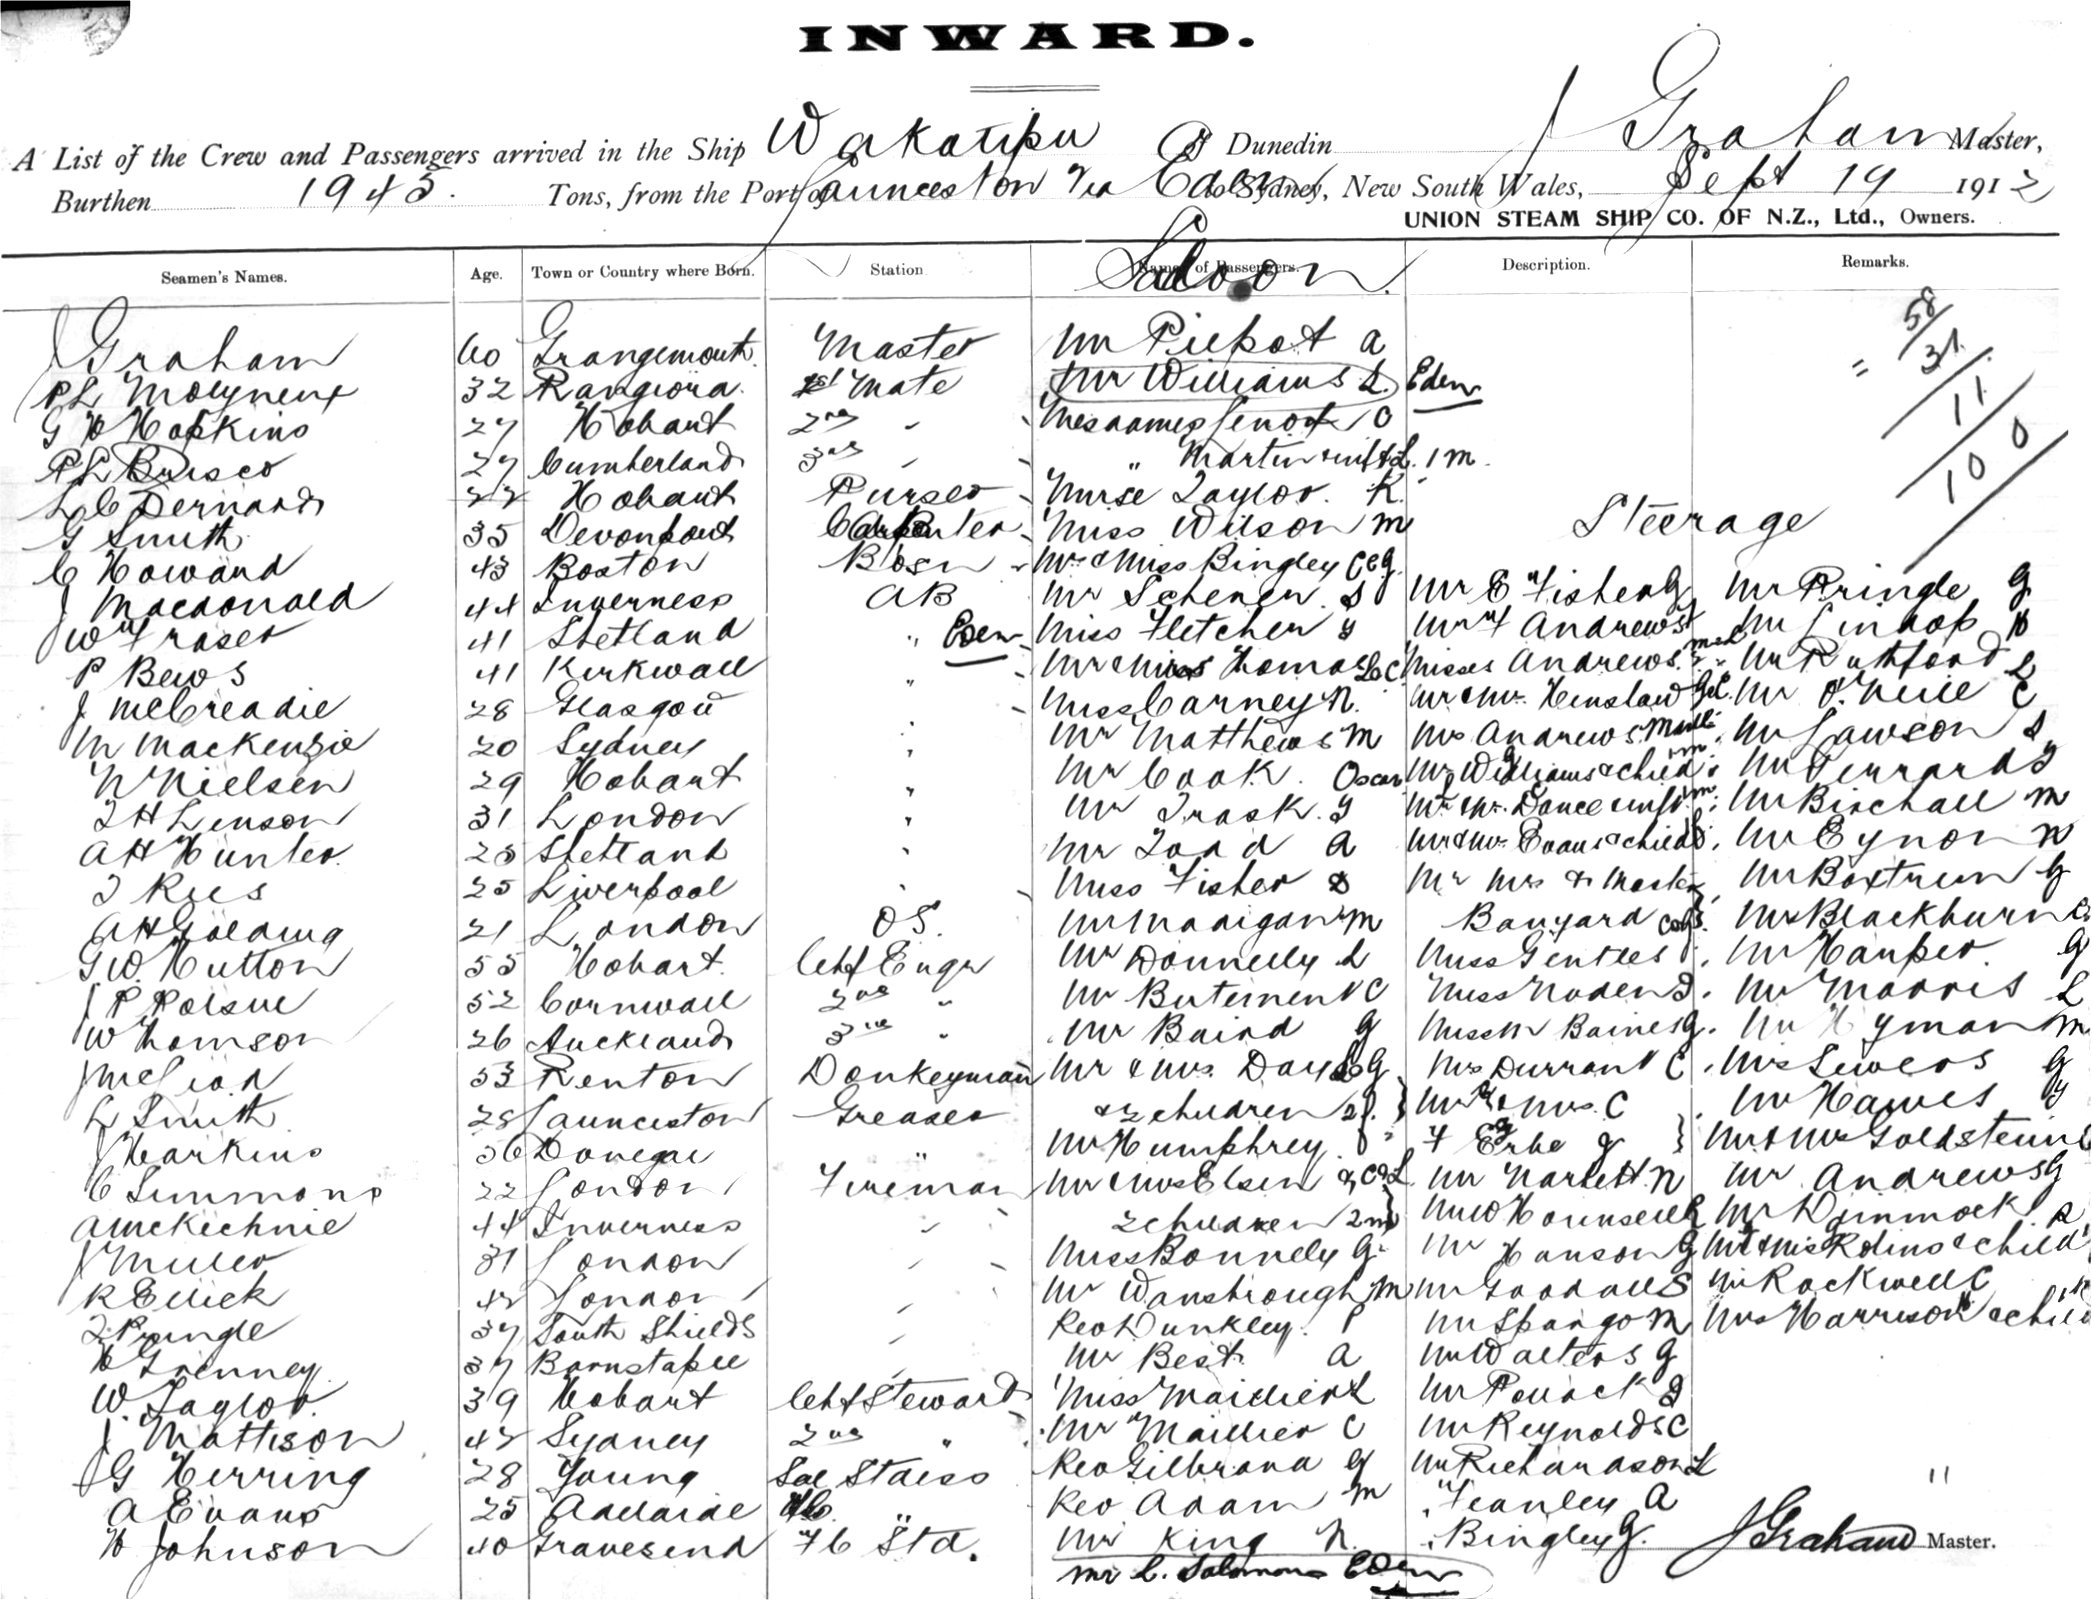 INWARD.
A List of the Crew and Passengers arrived in the Ship Wakatipu of Dunedin J Graham Master,
Burthen 1945. Tons, from the Port of Launceston via Eden to Sydney, New South Wales, Sept 19 1912
UNION STEAM SHIP CO. OF N.Z., Ltd., Owners.
Seamen's Names. Age. Town or Country where Born. Station Names of Passengers. Description. Remarks.
Saloon.
58
31
11
100
J Graham 60 Grangemouth Master Mr Piepot A
P L Molyneux 32 Rangiora 1st Mate Mr Williams L. Eden
G H Hopkins 27 Hobart 2nd " Mesdames Genot O
Brisco 27 Cumberland 3rd " " Martin & inft L. 1 m.
L C Bernard 22 Hobart Purser Nurse Taylor. K.
Steerage
G Smith 35 Devonport Carpenter Miss Wilson M
C Howard 43 Boston Bosn Mr & Miss Bingley C & G.
J Macdonald 44 Inverness AB Mr Schenen S Mr E Fisher G Mr Pringle G
W Fraser 41 Shetland " Eden Miss Fletcher Y Mr F Andrews Mr H
P Bews 41 Kirkwall " Mr & Miss Thomas L C Misses Andrews Mr Ruthford L
J McCreadie 28 Glasgow " Miss Carney N. Mr & Mrs Henslaw G & C. Mr O'Neill C
M Mackenzie 20 Sydney " Mr Matthews M Mrs Andrews Mr Lawson S
N Nielsen 29 Hobart " Mr Cook. Oscar Mrs Williams & child Mr Gerrard
T H Lenson 31 London " Mr Trask. Y Mr & Mrs Dance & inft. Mr Birchall M
A H Hunter 25 Shetland " Mr Todd A Mr & Mrs Evans & child Mr Eynon N
T Rees 25 Liverpool " Miss Fisher S Mr Mrs & Master Mr G
A H Golding 21 London OS. Mr Madigan M Banyard Mrs Blackburn
G W. Hutton 55 Hobart. Chf Engr Mr Donnelly L Miss Gentles Mr Harper. G
J P Polsue 52 Cornwall 2nd " Mr Butement C Miss Noden Mr Morris L
W Thomson 26 Auckland 3rd " Mr Baird G Miss M Baines G. Mr Hyman M
J McLeod 53 Renton Donkeyman Mr & Mrs. Day L & G Mrs Durrant C Mrs Sewers G
L Smith 28 Launceston Greaser & 2 children 2 f. Mr & Mrs. C Mr Hawes Y
J Harkins 56 Donegal " Mr Humphrey. F Erbe G Mr & Mrs Goldstein
C Simmons 22 London Fireman Mr & Mrs Elsen Mr N Mr Andrews G
A McKechnie 44 Inverness " 2 children 2 m Mr W Hounsell Mr Dimmock
J Miller 31 London " Miss Bonnely G. Mr Hanson G Mr & Mrs Robins & child
R Ellick 42 London " Mr Wansbrough M Mr Goodall S Mr Rockwell C
T Pringle 37 South Shields " Rev Dunkley. P Mr Spargo M Mrs Harrison & child
H Grenney 37 Barnstaple " Mr Best. A Mr Walters G
W Taylor. 39 Hobart Chf Steward Miss Maillier L Mr Pollock
J. Mattison 42 Sydney 2nd " Mr Maillier C Mr Reynolds C
G Herring 28 Young Sal Stdess Rev Gilbrand G Mr Richardson L
A Evans 25 Adelaide " Rev Adam M " Feanley A
H Johnson 40 Gravesend F C Std. Mr King N. " Bingley G. J Graham Master.
Mr C. Solomons Eden